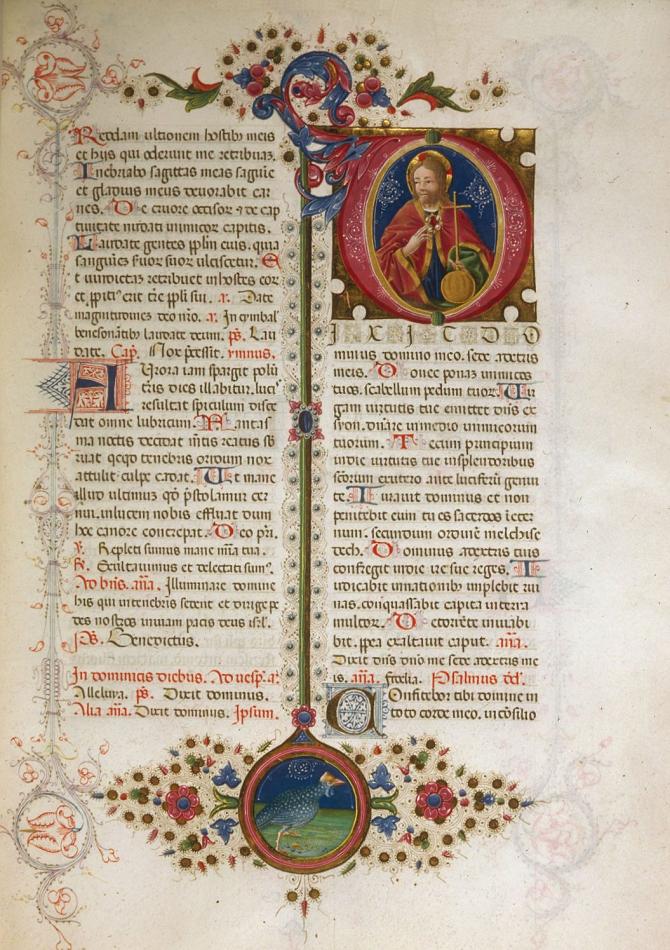 Reddam ultionem hostibꝫ meis
et hijs qui oderunt me retribuam.
Inebriabo sagittas meas sanguīe
et gladius meus devorabit car
nes. De cruore occisoꝝ ⁊ de cap
tivitate nudati inimicoꝝ capitis.
Laudate gentes pplm eius. quia
sanguinē suoꝝ suoꝝ ulciscetur. Et
t vindictam retribuet in hostes eoꝝ
et ppiti9 erit tre ppli sui. a. Date
magnitudinem deo nr̄o. a. In cymbal
benesonātibꝫ laudate deum. ps. Lau
date. Cap. Nox pcessit. ymnus.
Aurora iam spargit polū
terris dies illabitur. luci9
resultat spiculum disce
dat omne lubricum.
ma noctis decidat mētis reatus sb
ruat
attulit culpe cadat. Ut mane
illud ultimum qd pstolamur cer
nui. in lucem nobis effluat dum
hec canore concrepat. Deo pri.
V. Repleti sumus mane mīa tua.
R. Exultavimus et delectati sum9.
Ad bn̄s. aña. Illuminare domine
his qui in tenebris sedent et dirige pe
des nostros in viam pacis deus isrl.
Ps. Benedictus.
In dominicis diebus. Ad vesp. a.
Alleluya. ps. Dixit dominus.
Alia aña. Dixit dominus. Ipsum.
DIXIT DO
minus domino meo. sede a dextris
meis. Donec ponam inimicos
tuos. scabellum pedum tuoꝝ. Vir
gam virtutis tue emittet dn̄s ex
syon. dn̄are in medio inimicorum
tuorum. Tecum principium
in die virtutis tue in splendoribus
sc̄orum ex utero ante luciferū genui
te. Iuravit dominus et non
penitebit eum tu es sacerdos ī eter
num. secundum ordinē melchise
dech. Dominus a dextris tuis
confregit in die ire sue reges. I
udicabit in nationibꝫ implebit rui
nas. conquassabit capita in terra
multoꝝ. De torrente in via bi
bit. pp̄ea exaltavit caput. aña.
Dixit dn̄s dn̄o meo sede a dextris me
is. aña. Fidelia. Psalmus dd.
Confitebor tibi domine in
toto corde meo. in cōsilio